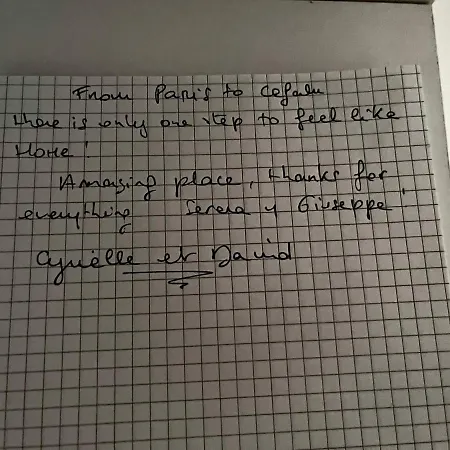 From Paris to Cefalu
there is only one step to feel like
Home!
Amazing place, thanks for
everything Serena y Giuseppe!
Cyrielle et David